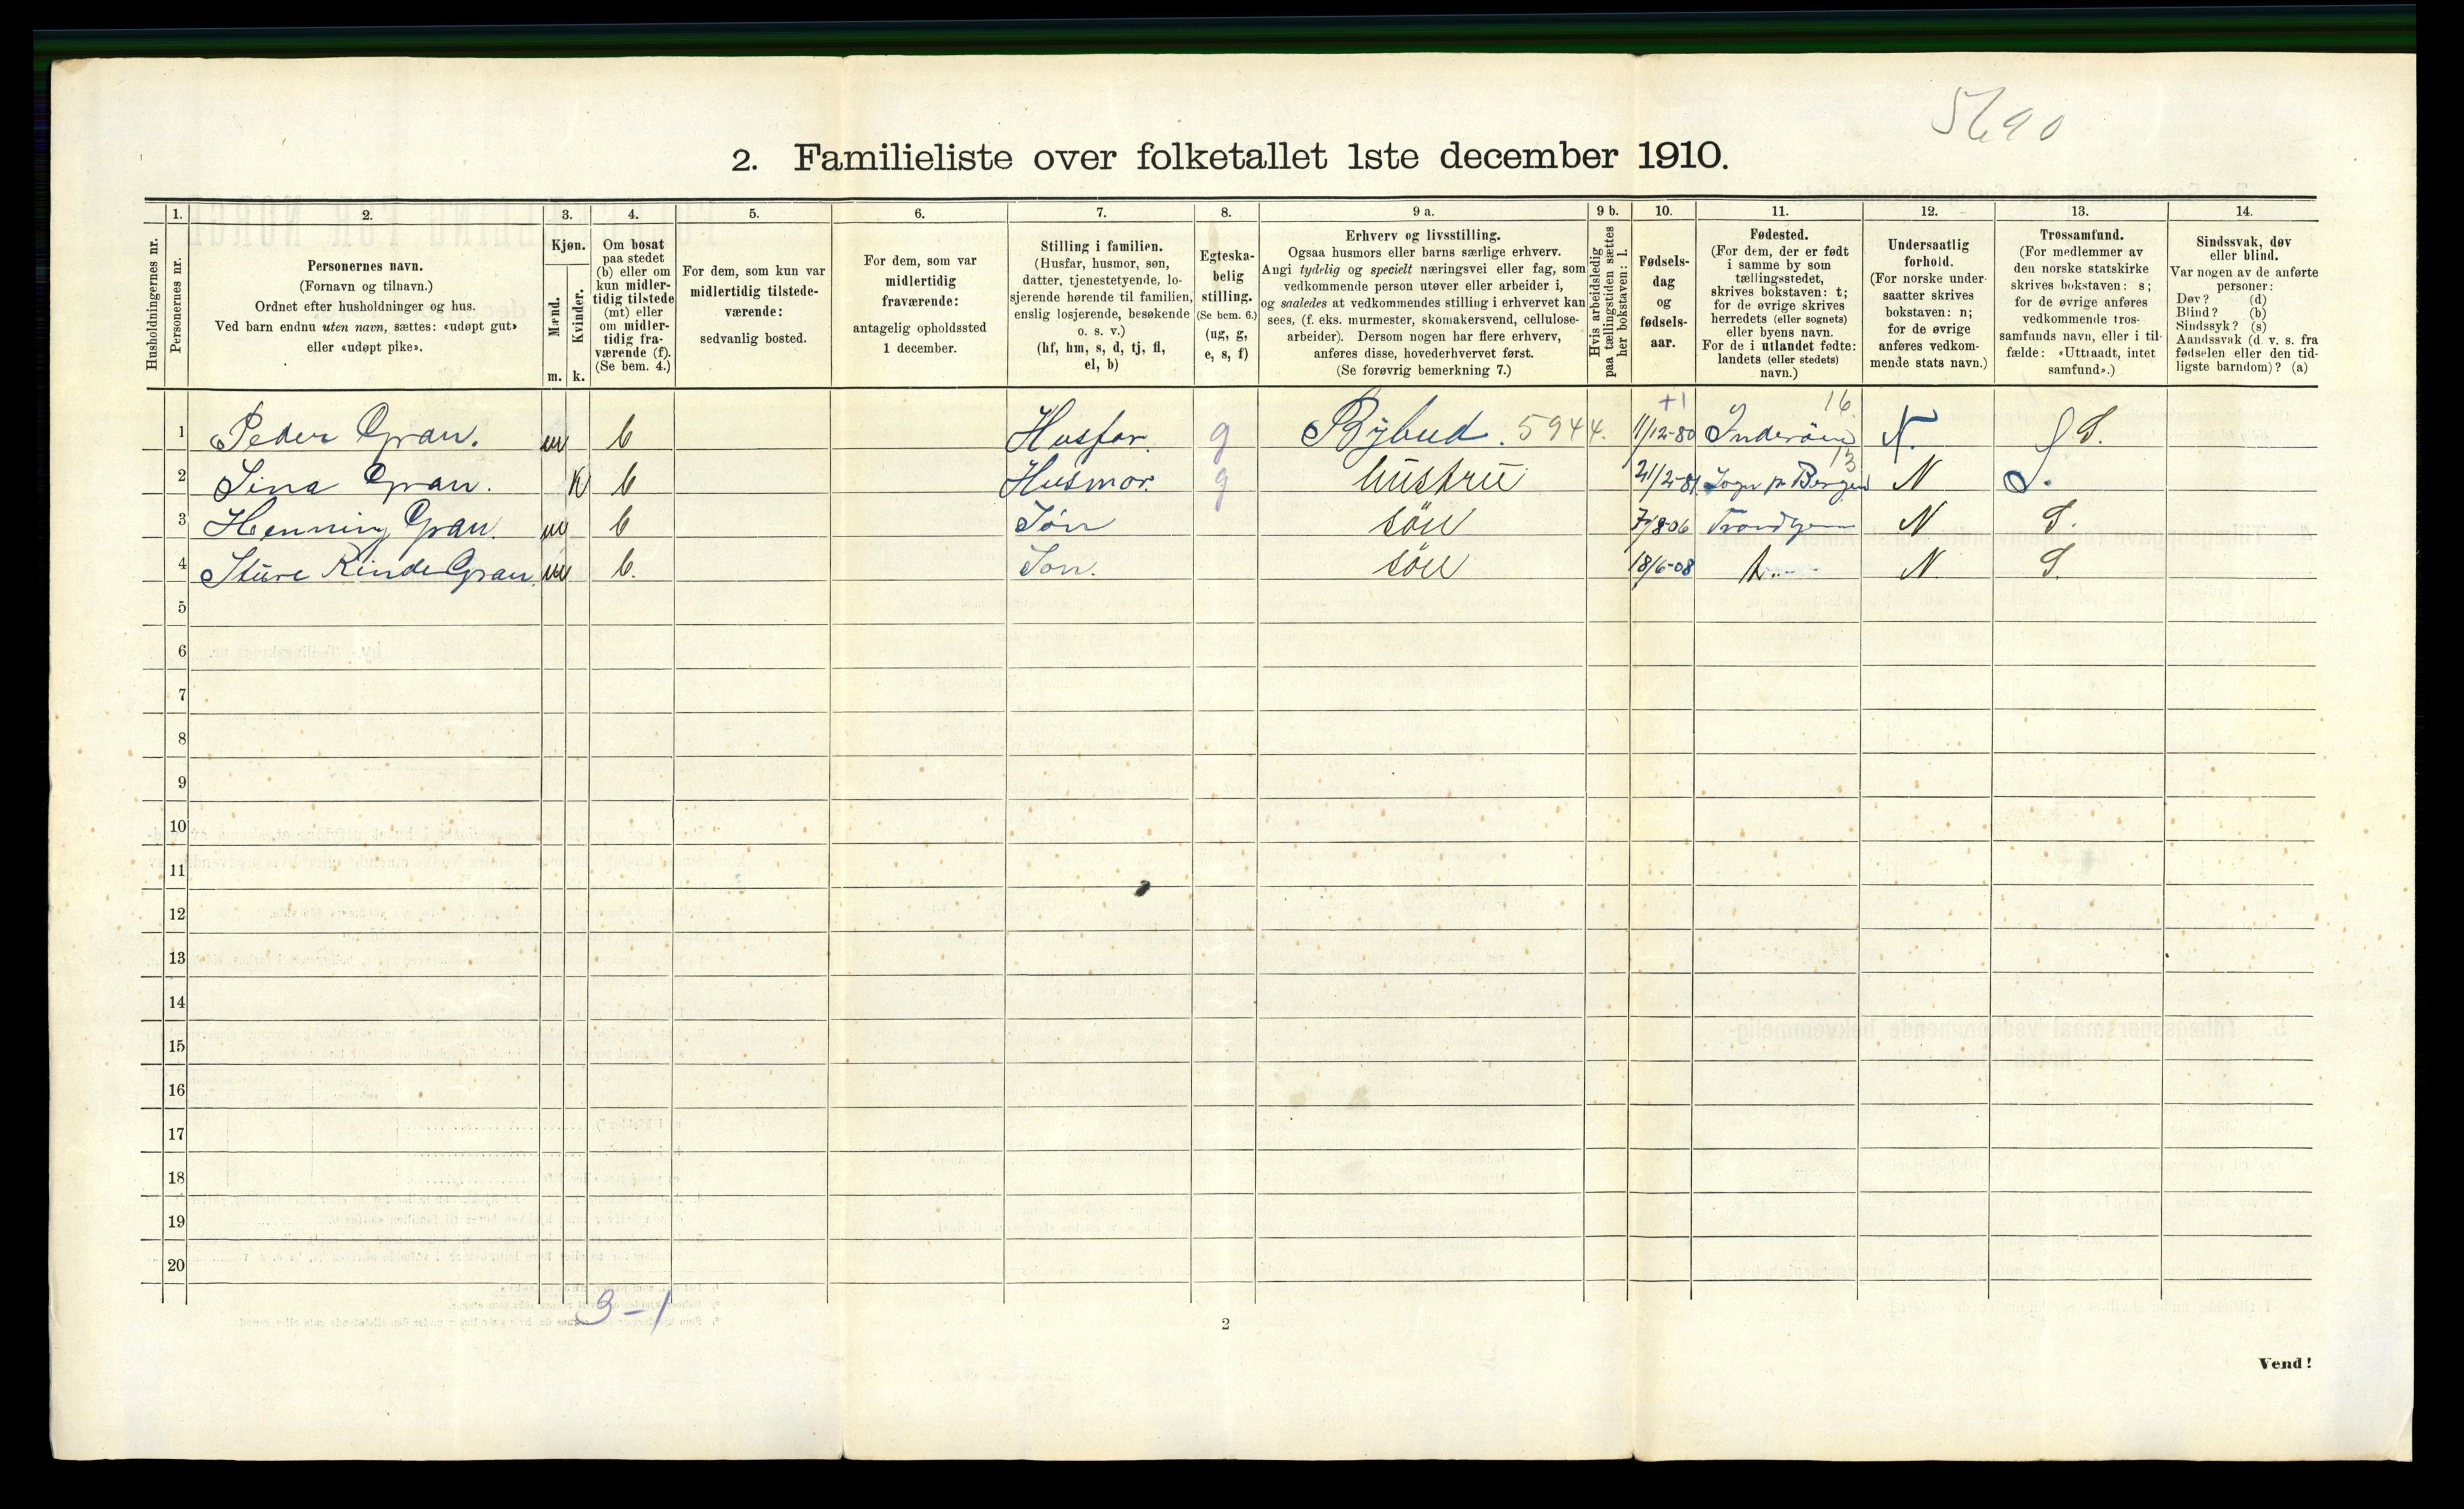 5690
2. Familieliste over folketallet 1ste december 1910.
Husholdningernes nr.
1.
Personernes nr.
2.
Personernes navn.
(Fornavn og tilnavn.)
Ordnet efter husholdninger og hus.
Ved barn endnu uten navn, sættes: «udøpt gut»
eller «udøpt pike».
3.
Kjøn.
Mænd.
Kvinder.
m. k.
4.
Om bosat
paa stedet
(b) eller om
kun midler-
tidig tilstede
(mt) eller
om midler-
tidig fra-
værende (f).
(Se bem. 4.)
5.
For dem, som kun var
midlertidig tilstede-
værende:
sedvanlig bosted.
6.
For dem, som var
midlertidig
fraværende:
antagelig opholdssted
1 december.
7.
Stilling i familien.
(Husfar, husmor, søn,
datter, tjenestetyende, lo-
sjerende hørende til familien,
enslig losjerende, besøkende
o. s. v.)
(hf, hm, s, d, tj, fl,
el, b)
8.
Egteska-
belig
stilling.
(Se bem. 6.)
(ug, g,
e, s, f)
9 a.
Erhverv og livsstilling.
Ogsaa husmors eller barns særlige erhverv.
Angi tydelig og specielt næringsvei eller fag, som
vedkommende person utøver eller arbeider i,
og saaledes at vedkommendes stilling i erhvervet kan
sees, (f. eks. murmester, skomakersvend, cellulose-
arbeider). Dersom nogen har flere erhverv,
anføres disse, hovederhvervet først.
(Se forøvrig bemerkning 7.)
9 b.
Hvis arbeidsledig
paa tællingstiden sættes
her bokstaven: l.
10.
Fødsels-
dag
og
fødsels-
aar.
11.
Fødested.
(For dem, der er født
i samme by som
tællingsstedet,
skrives bokstaven: t;
for de øvrige skrives
herredets (eller sognets)
eller byens navn.
For de i utlandet fødte:
landets (eller stedets)
navn.)
12.
Undersaatlig
forhold.
(For norske under-
saatter skrives
bokstaven: n;
for de øvrige
anføres vedkom-
mende stats navn.)
13.
Trossamfund.
(For medlemmer av
den norske statskirke
skrives bokstaven: s;
for de øvrige anføres
vedkommende tros-
samfunds navn, eller i til-
fælde: «Uttraadt, intet
samfund».)
14.
Sindssvak, døv
eller blind.
Var nogen av de anførte
personer:
Døv? (d)
Blind? (b)
Sindssyk? (s)
Aandssvak (d. v. s. fra
fødselen eller den tid-
ligste barndom)? (a)
+1 16
1 Peder Gran. m b Husfar. g Bybud. 5944. 11/12-80 Inderöen N. S.
13
2 Sina Gran. K b Husmor. g hustru 21/2-81 Sogn pr Bergen N S.
3 Henning Gran. m b Sön sön 7/8 06 Trondhjem N S.
4 Sture Rinde Gran. m b. Son. sön 18/6-08 N. S.
5
6
7
8
9
10
11
12
13
14
15
16
17
18
19
20
3-1
2
Vend!